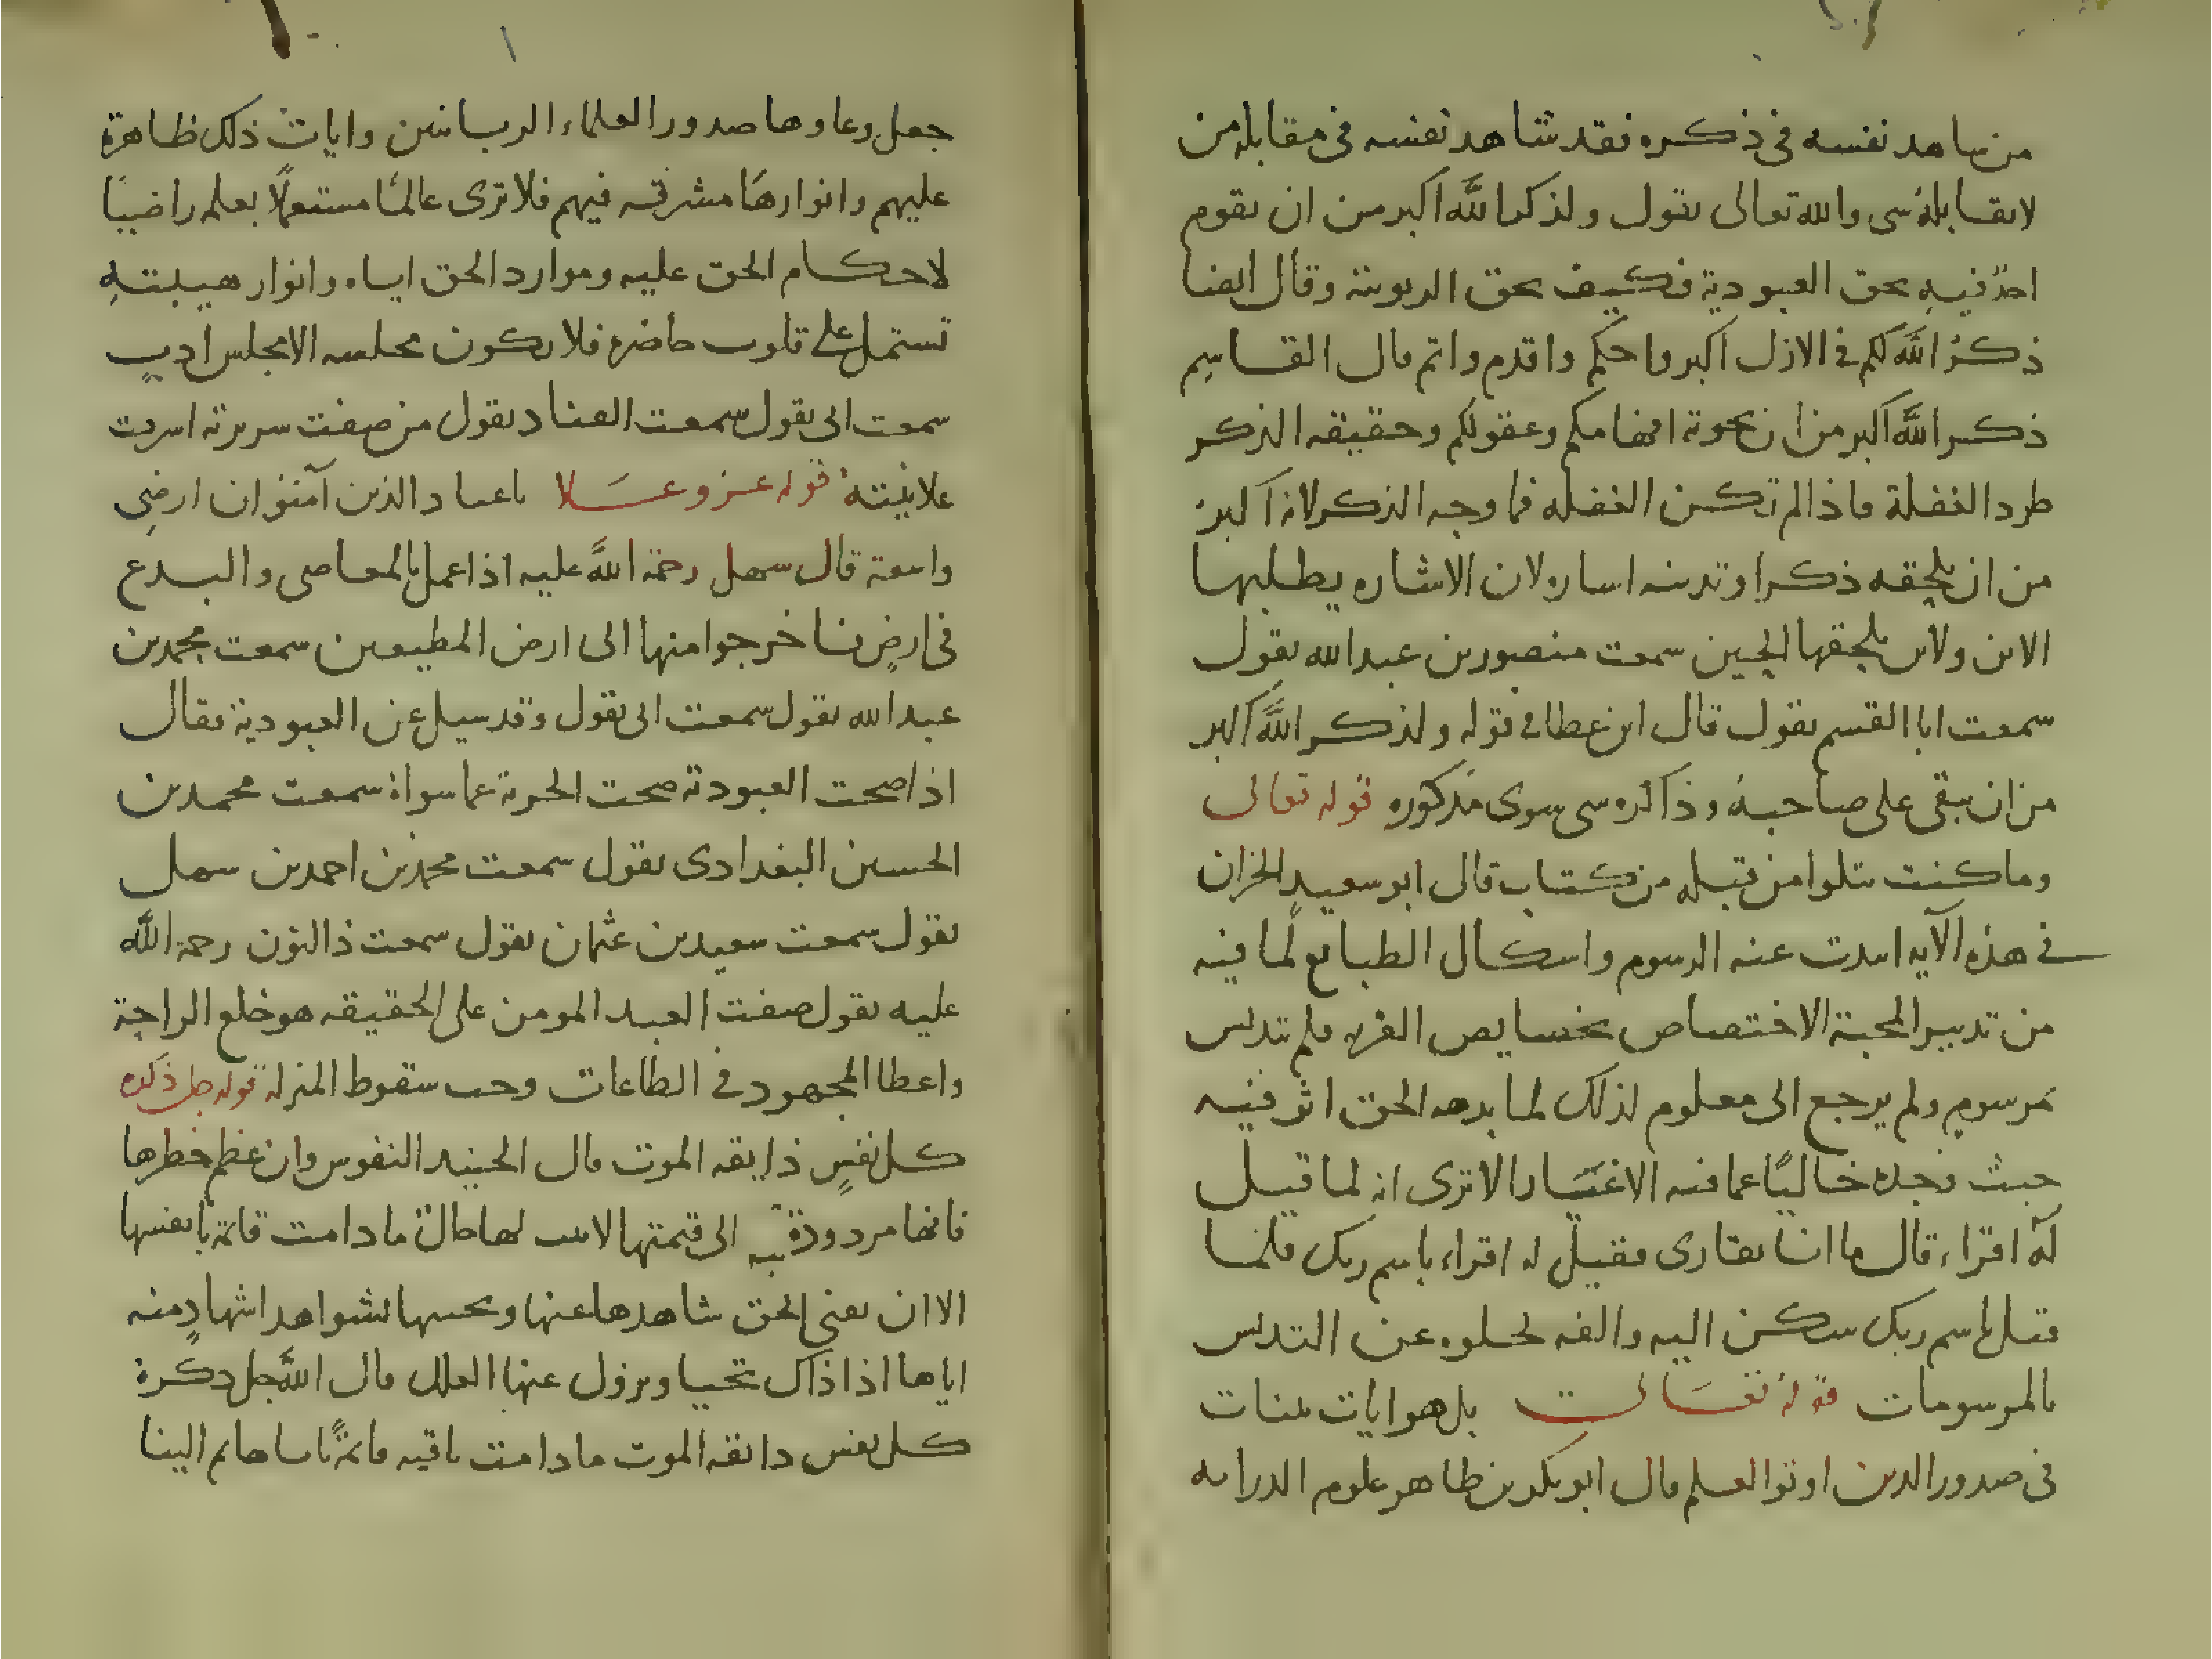 من شاهد نفسه في ذكره فقد شاهد نفسه في مقابلة من
لا يقابله شي والله تعالى يقول ولذكر الله اكبر من ان يقوم
احد فيه بحق العبودية فكيف بحق الربوبية وقال ايضا
ذكرُ الله لكم في الازل اكبر واحكم واقدم واتم قال القاسم
ذكر الله اكبر من ان تحويه افهامكم وعقولكم وحقيقه الذكر
طرد الغفلة فاذا لم تكن الغفله فما وجه الذكر لانه اكبر
من ان يلحقه ذكر او تدينه اشاره لان الاشاره يطلبها
الاين ولاين يلحقها الحين سمعت منصور بن عبد الله يقول
سمعت ابا القسم يقول قال ابن عطا في قوله ولذكر الله اكبر
من ان يبقى على صاحبه وذاكره شي سوى مذكوره قوله تعالى
وما كنت تتلوا من قبله من كتاب قال ابو سعيد الخراز
في هذه الآيه اسدت عنه الرسوم واشكال الطبايع لما فيه
من تدبير المحبة الاختصاص بخصايص القربه فلم يتدنس
بمرسوم ولم يرجع الى معلوم لذلك لما بدهه الحق اثر فيه
حيث وجده خاليًا عما فيه الاغيَار الا ترى انه لما قيل
له اقراء قال ما انا بقارى فقيل له اقراء باسم ربك فلما
قيل باسم ربك سكن اليه والفه لخلوه عن التدنس
بالمرسومات قوله تعَالى بل هو ايات بينات
في صدور الذين اوتوا العلم قال ابو بكر بن طاهر علوم الدرايه
جعل وعاوها صدور العلماء الربانيين وايات ذلك ظاهرة
عليهم وانوارها مشرقه فيهم فلا ترى عالمًا مستعملًا بعلمه راضيًا
لاحكام الحق عليه وموارد الحق اياه وانوار هيبتهِ
تشتمل على قلوب حاضره فلا يكون مجلسه الا مجلس اديب
سمعت ابي يقول سمعت القناد يقول من صفت سريرته اشرقت
علانيته قوله عز وعَلا ياعباد الذين آمنوا ان ارضي
واسعة قال سهل رحمة الله عليه اذا عمل بالمعاصي والبدع
في ارضٍ فاخرجوا منها الى ارض المطيعين سمعت محمد بن
عبد الله يقول سمعت ابي يقول وقد سيل عن العبودية فقال
اذا صحت العبودية صحت الحرية عما سواهُ سمعت محمد بن
الحسين البغدادي يقول سمعت محمد بن احمد بن سهل
يقول سمعت سعيد بن عثمان يقول سمعت ذا النون رحمة الله
عليه يقول صفت العبد المومن على الحقيقه هو خلع الراحة
واعطا المجهود في الطاعات وحب سقوط المنزلة قوله جل ذكره
كل نفسٍ ذايقه الموت قال الجنيد النفوس وان عظم خطرها
فانها مردودة الى قيمتها لاىب لها حال ما دامت قائمة بانفسها
الا ان يعنى الحق شاهدها عنها ويحسها بشواهد اشهادٍ منه
اياها اذا ذاك تحيا ويزول عنها العلل قال الله جل ذكره
كل نفس ذائقه الموت ما دامت باقيه قائمة باسا هائم الينا